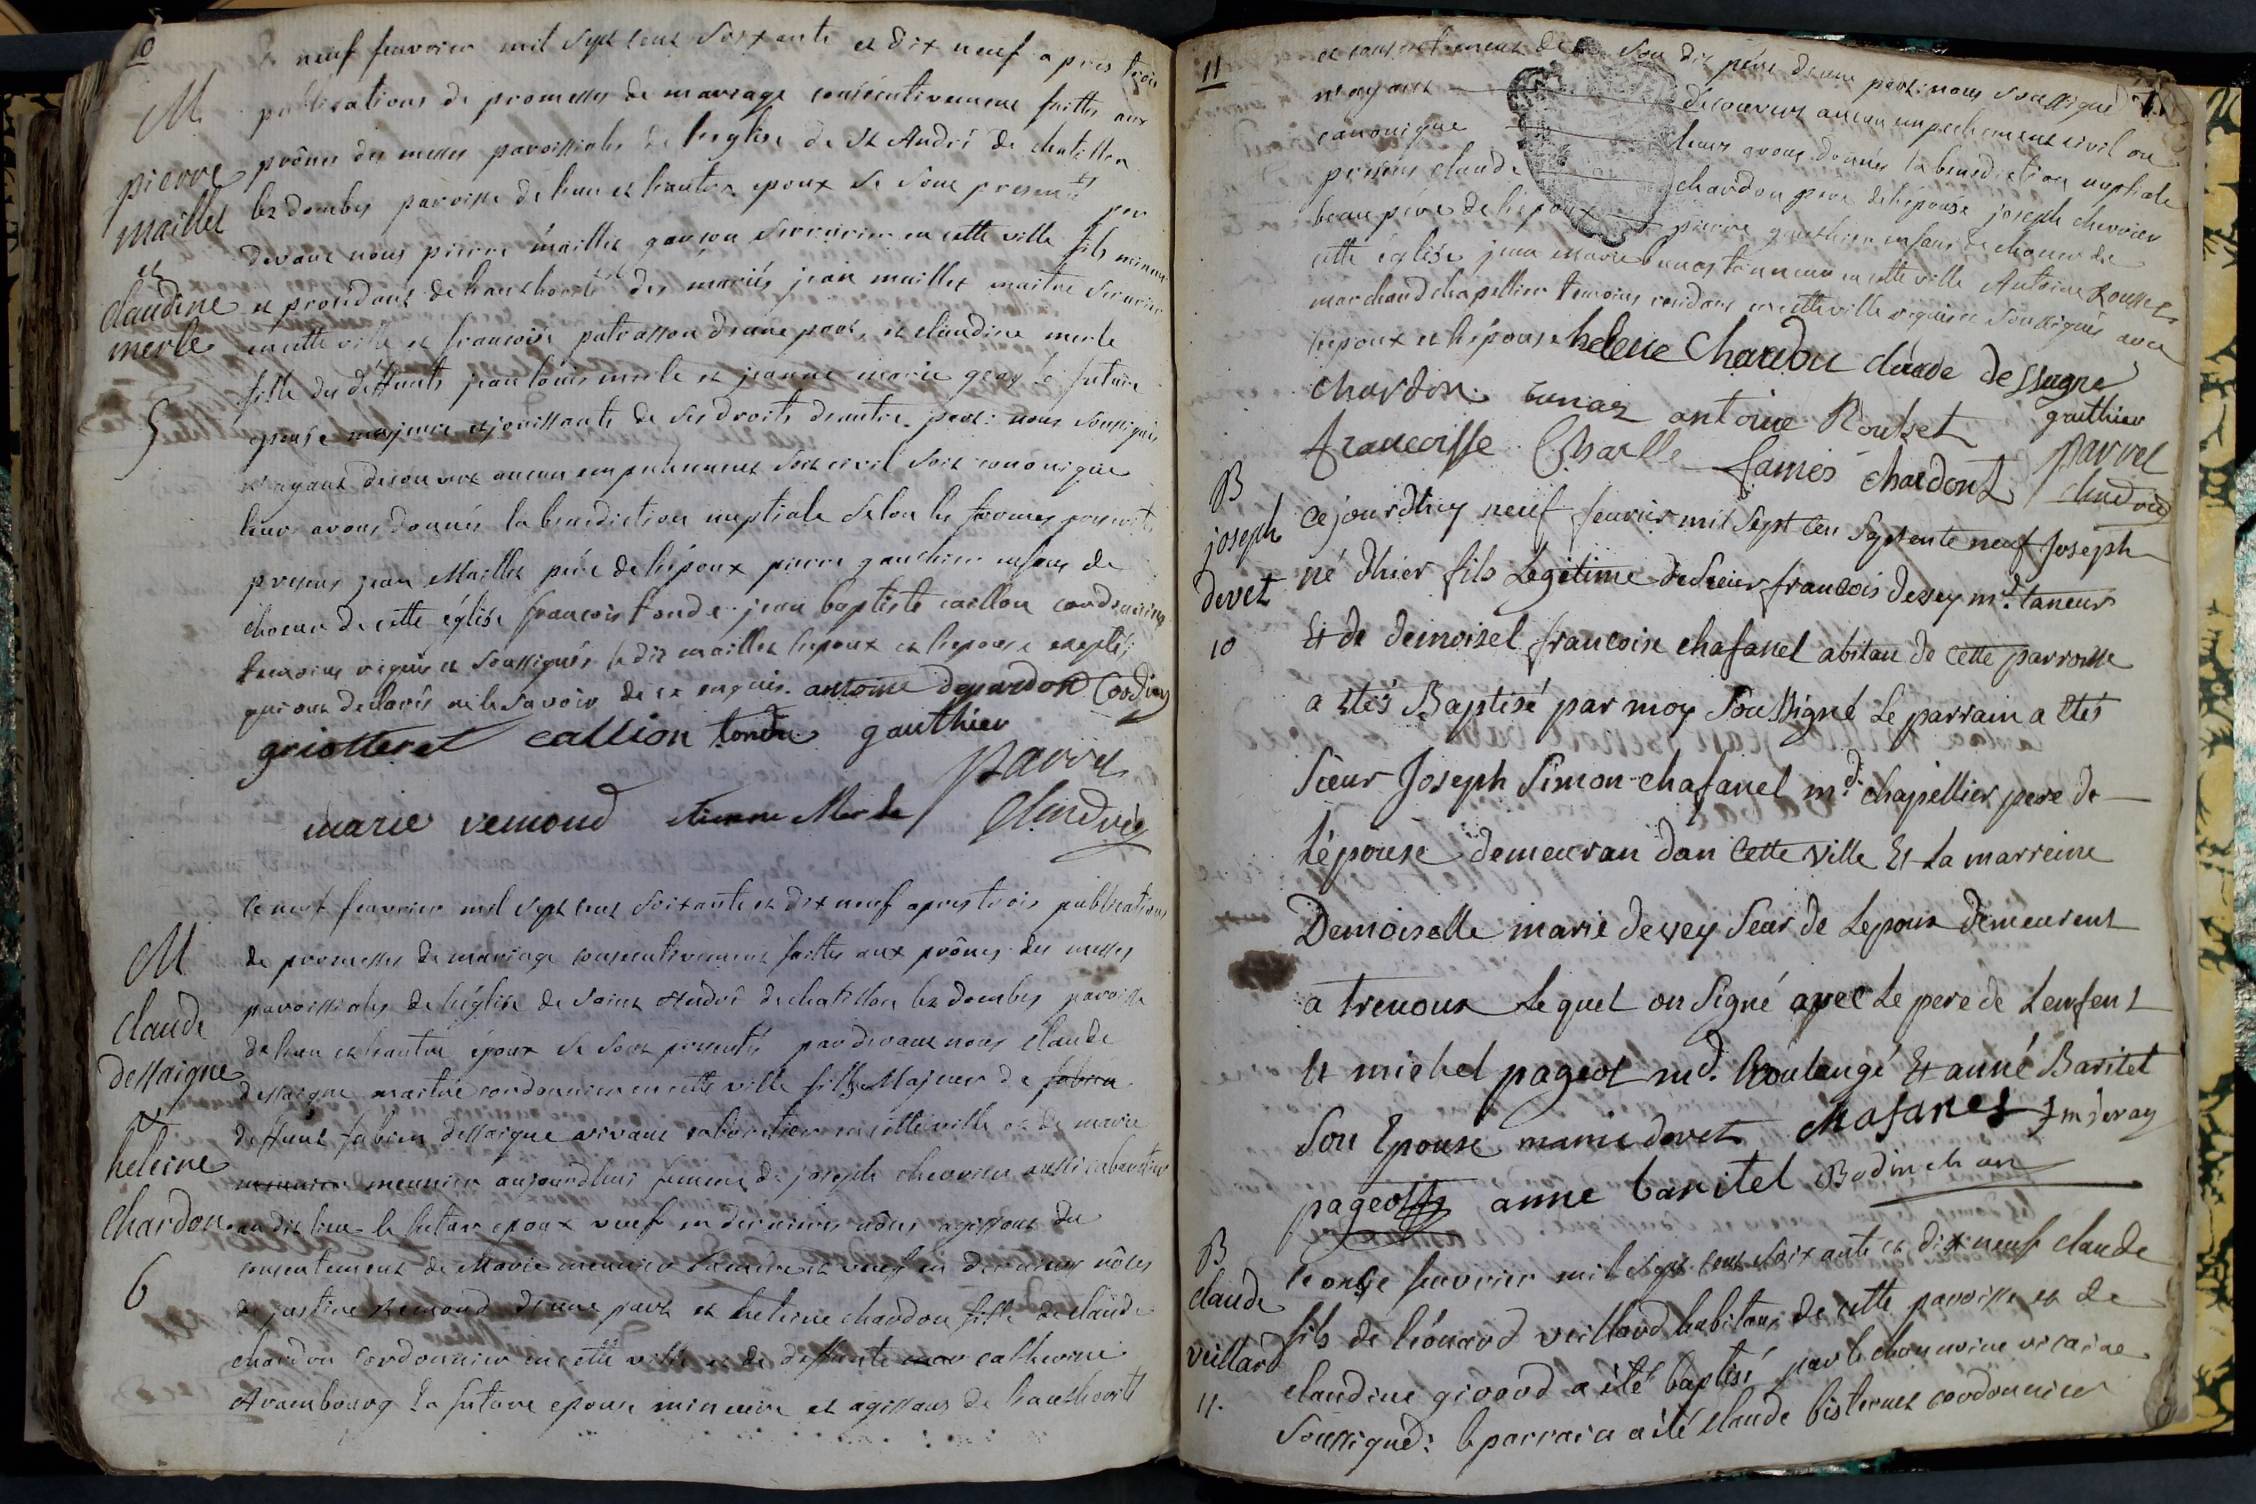 10
neuf feuvrier mil sept cent soixante et dix neuf apres trois
M
publications de promesses de mariage consécutivement faittes aux
prônes des messes paroissiales de l'eglise de St André de chatillon
pierre
maillet
et
claudine
merle
5
les dombes paroisse de l'un et l'autre epoux se sont presentés par
devant nous pierre maillet garçon serrurier en cette ville fils mineur
et procédant de l'authorité des mariés jean maillet maitre serrurier
en cette ville et francoise patrasson d'une part, et claudine merle
fille des deffunts jean louis merle et jeanne marie gras la future
epouse majeure et jouissante de ses droits d'autre part: nous soussigné
n'ayant decouvert aucun empechement soit civil soit canonique
leurs avons donnés la benediction nuptiale selon les formes prescrites
presens jean Maillet père de l'époux pierre gauthier enfant de
choeur de cette église francois tondu jean baptiste caillon cordonnier
temoins requis et soussignés le dit maillet l'epoux et l'epouse exceptés
qui ont declarés ne le savoir de ce enquis. antoine dejardon Cordier
griotteret callion tondu gauthier
marie remond etienne Merle
M
claude
dessaigne
&
heleine
chardon
6
le neuf feuvrier mil sept cent soixante et dix neuf apres trois publications
de promesses de mariage consecutivement faittes aux prônes des messes
paroissiales de l'église de saint André de chatillon les dombes paroisse
de l'un et l'autre époux se sont presentés par devant nous claude
dessaigne maitre cordonnier en cette ville fils Majeur de fabien
deffunt fabien dessaigne vivant cabaretier en cette ville et de marie
meunier meunier aujourdhui femme de joseph chevrier aussi cabaretier
au dit lieu le futur epoux veuf en dernieres nôces agissant du
consentement de Marie meunier sa mere et veuf en dernieres nôces
de justine Remond d'une part et heleine chardon fille de claude
chardon cordonnier en cette ville et de deffunte catherine
Arambourg la future épouse mineure et agissant de l'authorité
11
et consentement de son dit père d'autre part: nous soussigné
n'ayant decouvert aucun empechement civil ou
canonique leurs avons donnés la benediction nuptiale
presens claude chardon pere de l'épouse joseph chevrier
beau père de l'epoux pierre gauthier enfant de choeur de
cette église jean marie bunaz tanneur en cette ville Antoine Rousset
marchand chapellier temoins residans en cette ville requis et soussignés avec
l'epoux et l'épouse heleine Chardon claude dessagne
chardon bunaz antoine Rouset gauthier
francoisse Charlle James chardont
B
joseph
devet
10
ce jourdhuy neuf feuvrier mil sept cen septente neuf Joseph
né dhier fils Legitime de sieur francois devey md. taneur
Et de demoisel francoise chafanel abitan de cette parroisse
a étés Baptisé par moy Soussigné Le parrain a étés
Sieur Joseph Simon chafanel md. chapellier pere de
L'épouse demeuran dan Cette ville Et La marreine
Demoiselle marie devey Seur de Lepoux demeurent
a trevoux Lequel on Signé avec Le pere de Lenfent
Et michel pageot md. Boulengé Et anné Baritel
Son Epouse marie devet chafanel
pageot anne baritel Bodinchon
B
claude
veillard
11.
le onze feuvrier mil sept cent soixante et dix neuf claude
fils de léonard veillard habitant de cette paroisse et de
claudine girard a été baptisé par le chanoine vicaire
soussigné: le parrain a été claude bisternet cordonnier